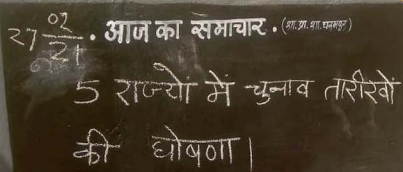 27 02/21 . आज का समाचार . (शा. प्रा. शा.
5 राज्यों में चुनाव तारीखों
की घोषणा |